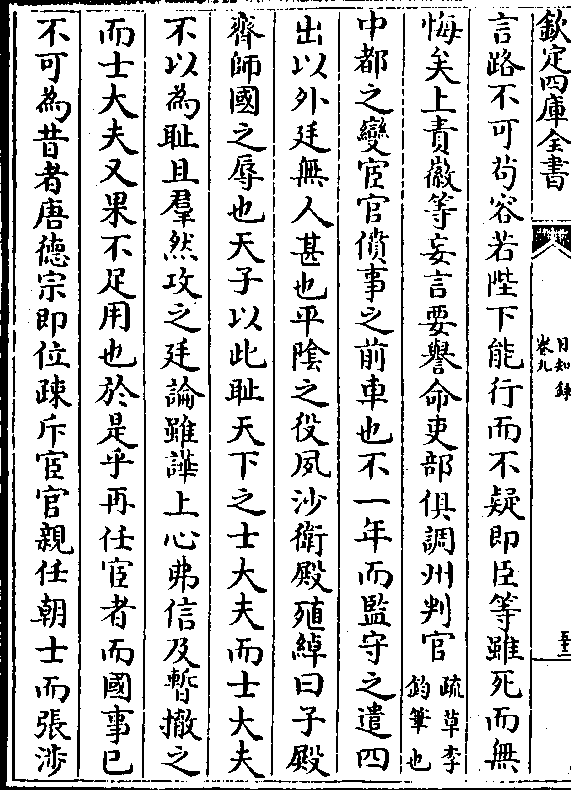 欽定四庫全書
日知録
卷九
言路不可茍容若陛下能行而不疑即臣等雖死而無
悔矣上責徽等妄言要譽命吏部俱調州判官
疏草李
鈞筆也
中都之變宦官僨事之前車也不一年而監守之遣四
出以外廷無人甚也平陰之役夙沙衛殿殖綽曰子殿
齊師國之辱也天子以此耻天下之士大夫而士大夫
不以為耻且羣然攻之廷論雖譁上心弗信及暫撤之
而士大夫又果不足用也於是乎再任宦者而國事已
不可為昔者唐德宗即位疎斥宦官親任朝士而張涉